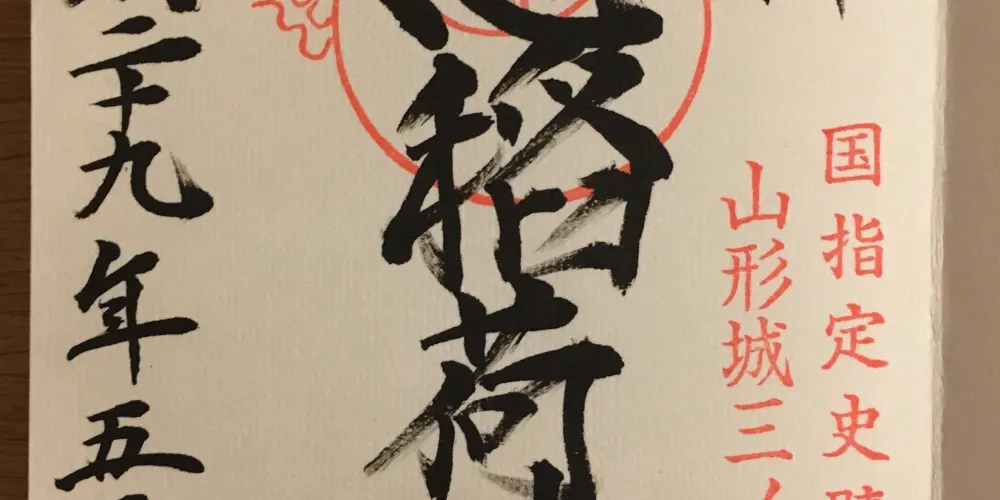 国指定史跡
山形城三
稲荷
二十九年五